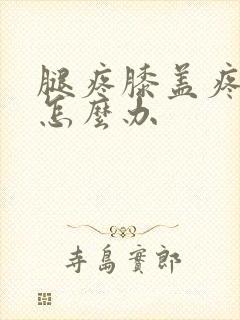 腿疼膝盖疼
怎麼办
寺島實郎